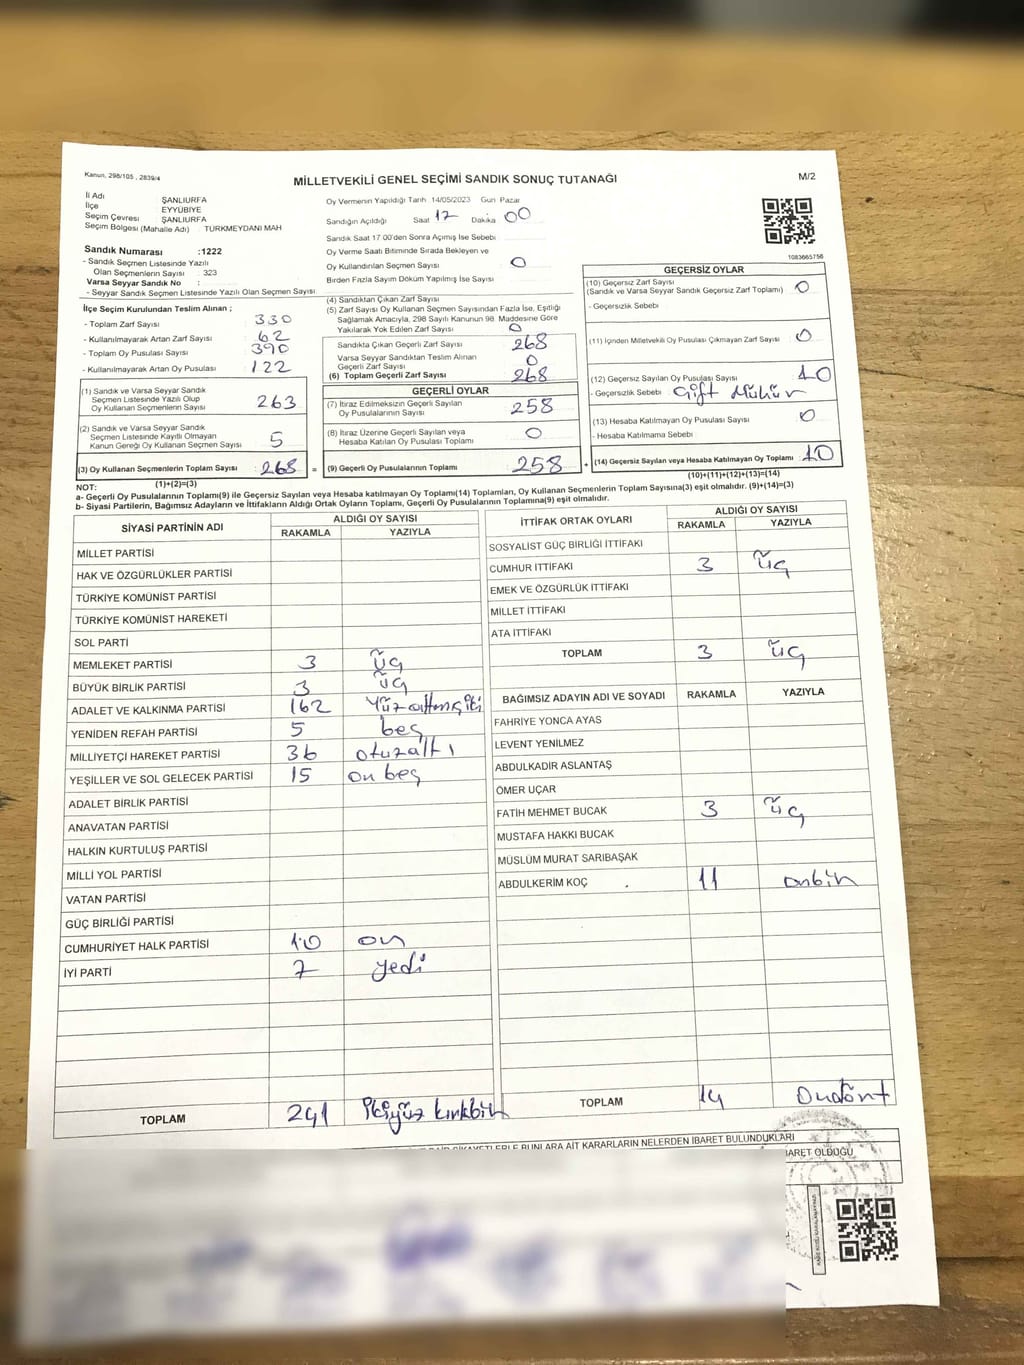 Kanun, 298/105 , 2839/4
MİLLETVEKİLİ GENEL SEÇİMİ SANDIK SONUÇ TUTANAĞI
M/2
İl Adı ŞANLIURFA
İlçe EYYÜBİYE
Seçim Çevresi ŞANLIURFA
Seçim Bölgesi (Mahalle Adı) : TÜRKMEYDANI MAH
Sandık Numarası :1222
- Sandık Seçmen Listesinde Yazılı
Olan Seçmenlerin Sayısı : 323
Varsa Seyyar Sandık No :
- Seyyar Sandık Seçmen Listesinde Yazılı Olan Seçmen Sayısı:
İlçe Seçim Kurulundan Teslim Alınan ;
- Toplam Zarf Sayısı : 330
- Kullanılmayarak Artan Zarf Sayısı : 62
- Toplam Oy Pusulası Sayısı : 390
- Kullanılmayarak Artan Oy Pusulası : 122
(1) Sandık ve Varsa Seyyar Sandık
Seçmen Listesinde Yazılı Olup
Oy Kullanan Seçmenlerin Sayısı : 263
(2) Sandık ve Varsa Seyyar Sandık
Seçmen Listesinde Kayıtlı Olmayan
Kanun Gereği Oy Kullanan Seçmen Sayısı : 5
(3) Oy Kullanan Seçmenlerin Toplam Sayısı : 268
(1)+(2)=(3)
Oy Vermenin Yapıldığı Tarih 14/05/2023 Gün Pazar
Sandığın Açıldığı Saat 17 Dakika 00
Sandık Saat 17 00'den Sonra Açımış İse Sebebi
Oy Verme Saati Bitiminde Sırada Bekleyen ve
Oy Kullandırılan Seçmen Sayısı 0
Birden Fazla Sayım Döküm Yapılmış İse Sayısı
(4) Sandıktan Çıkan Zarf Sayısı
(5) Zarf Sayısı Oy Kullanan Seçmen Sayısından Fazla İse, Eşitliği
Sağlamak Amacıyla, 298 Sayılı Kanunun 98. Maddesine Göre
Yakılarak Yok Edilen Zarf Sayısı 0
Sandıkta Çıkan Geçerli Zarf Sayısı 268
Varsa Seyyar Sandıktan Teslim Alınan
Geçerli Zarf Sayısı 0
(6) Toplam Geçerli Zarf Sayısı 268
GEÇERLİ OYLAR
(7) İtiraz Edilmeksizin Geçerli Sayılan
Oy Pusulalarının Sayısı 258
(8) İtiraz Üzerine Geçerli Sayılan veya
Hesaba Katılan Oy Pusulası Toplamı 0
= (9) Geçerli Oy Pusulalarının Toplamı 258
1083665756
GEÇERSİZ OYLAR
(10) Geçersiz Zarf Sayısı
(Sandık ve Varsa Seyyar Sandık Geçersiz Zarf Toplamı) : 0
- Geçersizlik Sebebi :
(11) İçinden Milletvekili Oy Pusulası Çıkmayan Zarf Sayısı : 0
(12) Geçersiz Sayılan Oy Pusulası Sayısı : 10
- Geçersizlik Sebebi : Çift Mühür
(13) Hesaba Katılmayan Oy Pusulası Sayısı : 0
- Hesaba Katılmama Sebebi
+ (14) Geçersiz Sayılan veya Hesaba Katılmayan Oy Toplamı : 10
(10)+(11)+(12)+(13)=(14)
NOT:
a- Geçerli Oy Pusulalarının Toplamı(9) ile Geçersiz Sayılan veya Hesaba katılmayan Oy Toplamı(14) Toplamları, Oy Kullanan Seçmenlerin Toplam Sayısına(3) eşit olmalıdır. (9)+(14)=(3)
b- Siyasi Partilerin, Bağımsız Adayların ve İttifakların Aldığı Ortak Oyların Toplamı, Geçerli Oy Pusulalarının Toplamına(9) eşit olmalıdır.
SİYASİ PARTİNİN ADI
ALDIĞI OY SAYISI
RAKAMLA YAZIYLA
MİLLET PARTİSİ
HAK VE ÖZGÜRLÜKLER PARTİSİ
TÜRKİYE KOMÜNİST PARTİSİ
TÜRKİYE KOMÜNİST HAREKETİ
SOL PARTİ
MEMLEKET PARTİSİ 3 üç
BÜYÜK BİRLİK PARTİSİ 3 üç
ADALET VE KALKINMA PARTİSİ 162 Yüzaltmışiki
YENİDEN REFAH PARTİSİ 5 beş
MİLLİYETÇİ HAREKET PARTİSİ 36 otuzaltı
YEŞİLLER VE SOL GELECEK PARTİSİ 15 on beş
ADALET BİRLİK PARTİSİ
ANAVATAN PARTİSİ
HALKIN KURTULUŞ PARTİSİ
MİLLİ YOL PARTİSİ
VATAN PARTİSİ
GÜÇ BİRLİĞİ PARTİSİ
CUMHURİYET HALK PARTİSİ 10 on
İYİ PARTİ 7 yedi
TOPLAM 241 İkiyüz kırkbir
İTTİFAK ORTAK OYLARI
ALDIĞI OY SAYISI
RAKAMLA YAZIYLA
SOSYALİST GÜÇ BİRLİĞİ İTTİFAKI
CUMHUR İTTİFAKI 3 üç
EMEK VE ÖZGÜRLÜK İTTİFAKI
MİLLET İTTİFAKI
ATA İTTİFAKI
TOPLAM 3 üç
BAĞIMSIZ ADAYIN ADI VE SOYADI RAKAMLA YAZIYLA
FAHRİYE YONCA AYAS
LEVENT YENİLMEZ
ABDULKADIR ASLANTAŞ
ÖMER UÇAR
FATİH MEHMET BUCAK 3 üç
MUSTAFA HAKKI BUCAK
MÜSLÜM MURAT SARIBAŞAK
ABDULKERİM KOÇ 11 onbir
TOPLAM 14 Ondört
BUNLARA AİT KARARLARIN NELERDEN İBARET BULUNDUKLARI
OLDUĞU